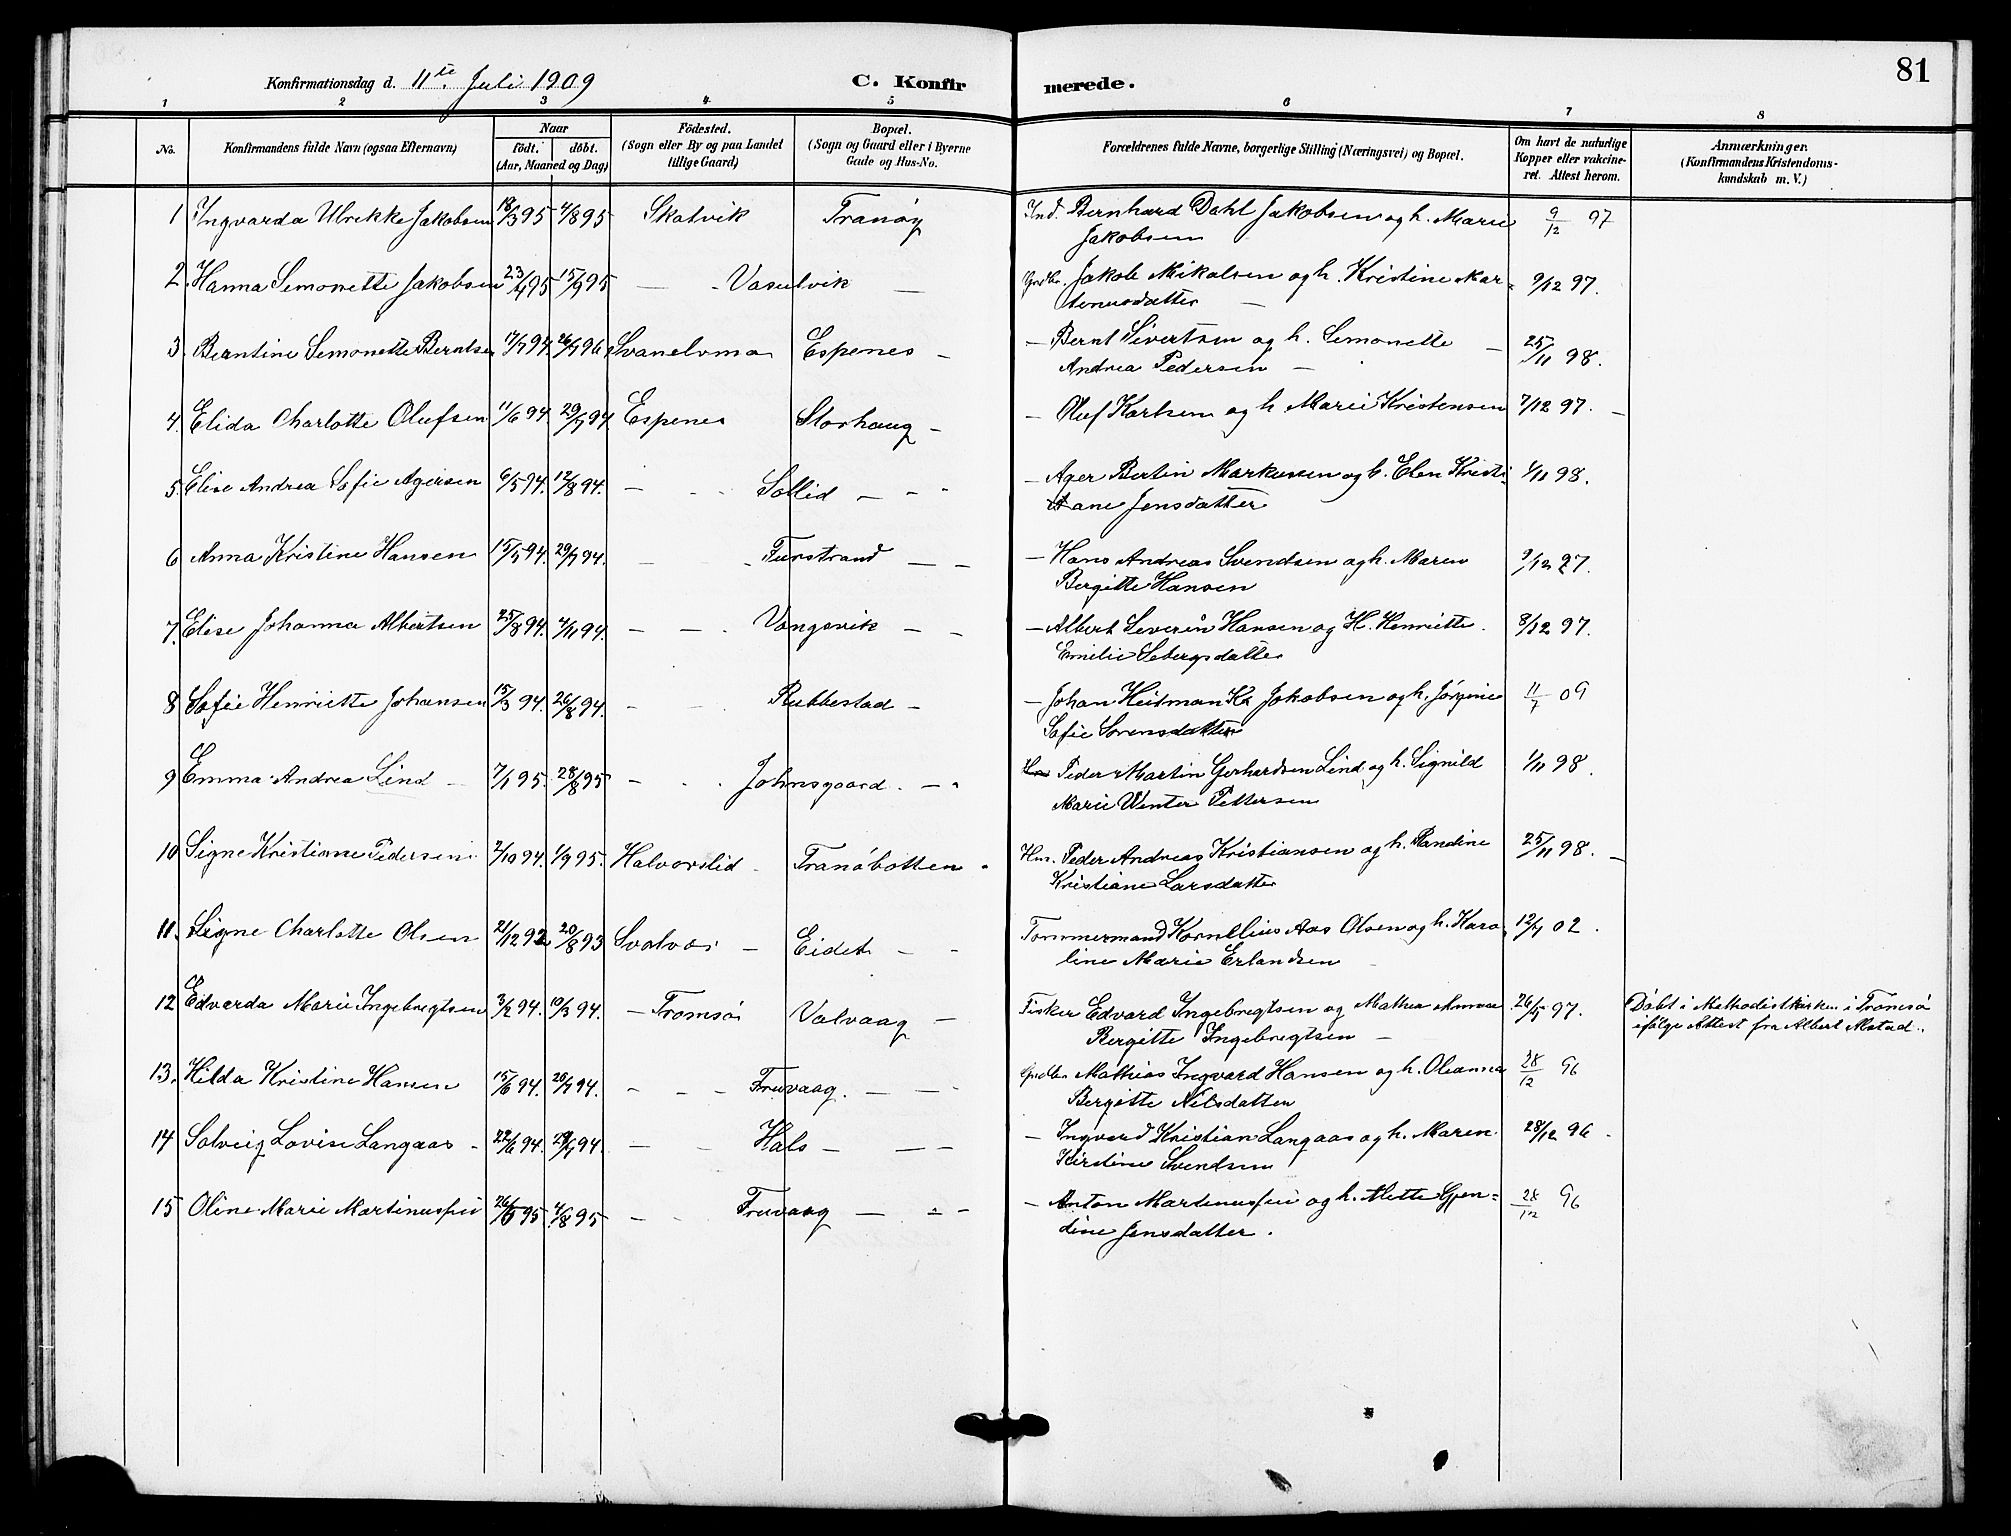 81
Konfirmationsdag d. 11te Juli 1909 C. Konfirmerede.
1 2 3 4 5 6 7 8
No. Konfirmandens fulde Navn (ogsaa Efternavn) Naar födt. döbt. (Aar, Maaned og Dag) Födested. (Sogn eller By og paa Landet tillige Gaard) Bopæl. (Sogn og Gaard eller i Byerne Gade og Hus-No. Forældrenes fulde Navne, borgerlige Stilling (Næringsvei) og Bopæl. Om havt de naturlige Kopper eller vakcineret. Attest herom. Anmærkninger. (Konfirmandens Kristendomskundskab m. V.)
1 Ingvarda Ulrikke Jakobsen 18/3 95 4/8 95 Skatvik Tranöy Ind. Bernhard Dahl Jakobsen og h. Marie 9/12 97
Jakobsen
2. Hanna Semonette Jakobsen 23/4 95 15/9 95 — Vasulvik — Grdbr. Jakob Mikalsen og h. Kristine Mar= 9/12 97.
tenusdatter —
3. Berntine Semonette Berntsen 17/7 94. 26/7 96 Svanelvmo Espenes — — Bernt Sivertsen og h. Semonette — 25/11 98.
Andrea Pedersen —
4. Elida Charlotte Olufsen 11/6 94. 29/7 94 Espenes Storhaug — — Oluf Karlsen og h Marie Kristensen 7/12 97. —
5. Elise Andrea Sofie Agersen 6/5 94. 12/8 94. — Sollid — — Ager Bertin Markussen og h. Elen Kristi- 1/11 98.
ane Jensdatter
6 Anna Kristine Hansen 15/5 94. 29/7 94. — Furstrand — — — Hans Andreas Svendsen og h. Maren 9/12 97.
Bergitte Hansen
7. Elise Johanna Albertsen 25/8 94. 4/11 94. — — Vangsvik — — — Albert Severin Hansen og H. Henriette 8/12 97.
Emelie Sebergsdatter
8 Sofie Henriette Johansen 15/3 94. 26/8 94. — — Rubbestad — — Johan Heitman Jakobsen og h. Jörgine 11/7 09
Sofie Sorensdatter
9 Emma Andrea Lind — 7/1 95. 28/8 95 — Johnsgaard. — Peder Martin Gerhardsen Lind og h. Signild 1/11 98.
Marie Wenter Pettersen
10 Signe Kristiane Pedersen 2/10 94. 1/9 95. Halvorslid Tranöbotten Hus. Peder Andreas Kristiansen og h. Randine 25/11 98. —
Kristiane Larsdatter
11. Signe Charlotte Olsen 21/12 92 20/8 93 Svolvær — Eidet — — Tömmermand Kornelius Aas Olsen og h. Karo- 12/4 02.
line Marie Erlandsen
12 Edvarda Marie Ingebregtsen 3/2 94. 10/3 94. — Tromsö Valvaag — Fisker Edvard Ingebregtsen og Mathea Annna 26/5 97. Döbt i Methodistkirken i Tromsö
Bergitte Ingebregtsen — ifölge Attest fra Albert
13. Hilda Kristine Hansen 15/6 94. 26/7 94. — — — Truvaag. — — Grdbr. Mathias Ingvard Hansen og h. Oleanna 28/12 96
Bergitte Nelsdatten
14 Solveig Lovise Langaas — 22/6 94. 29/7 94. — — Hals — — — — Ingvard Kristian Langaas og h. Maren 28/12 96.
Kirstine Svendsen
15 Oline Marie Martinussen 26/5 95. 4/8 95 — Truvaag — — — — Anton Martinussen og h. Mette Gjen= 28/12 96
dine Jensdatter.